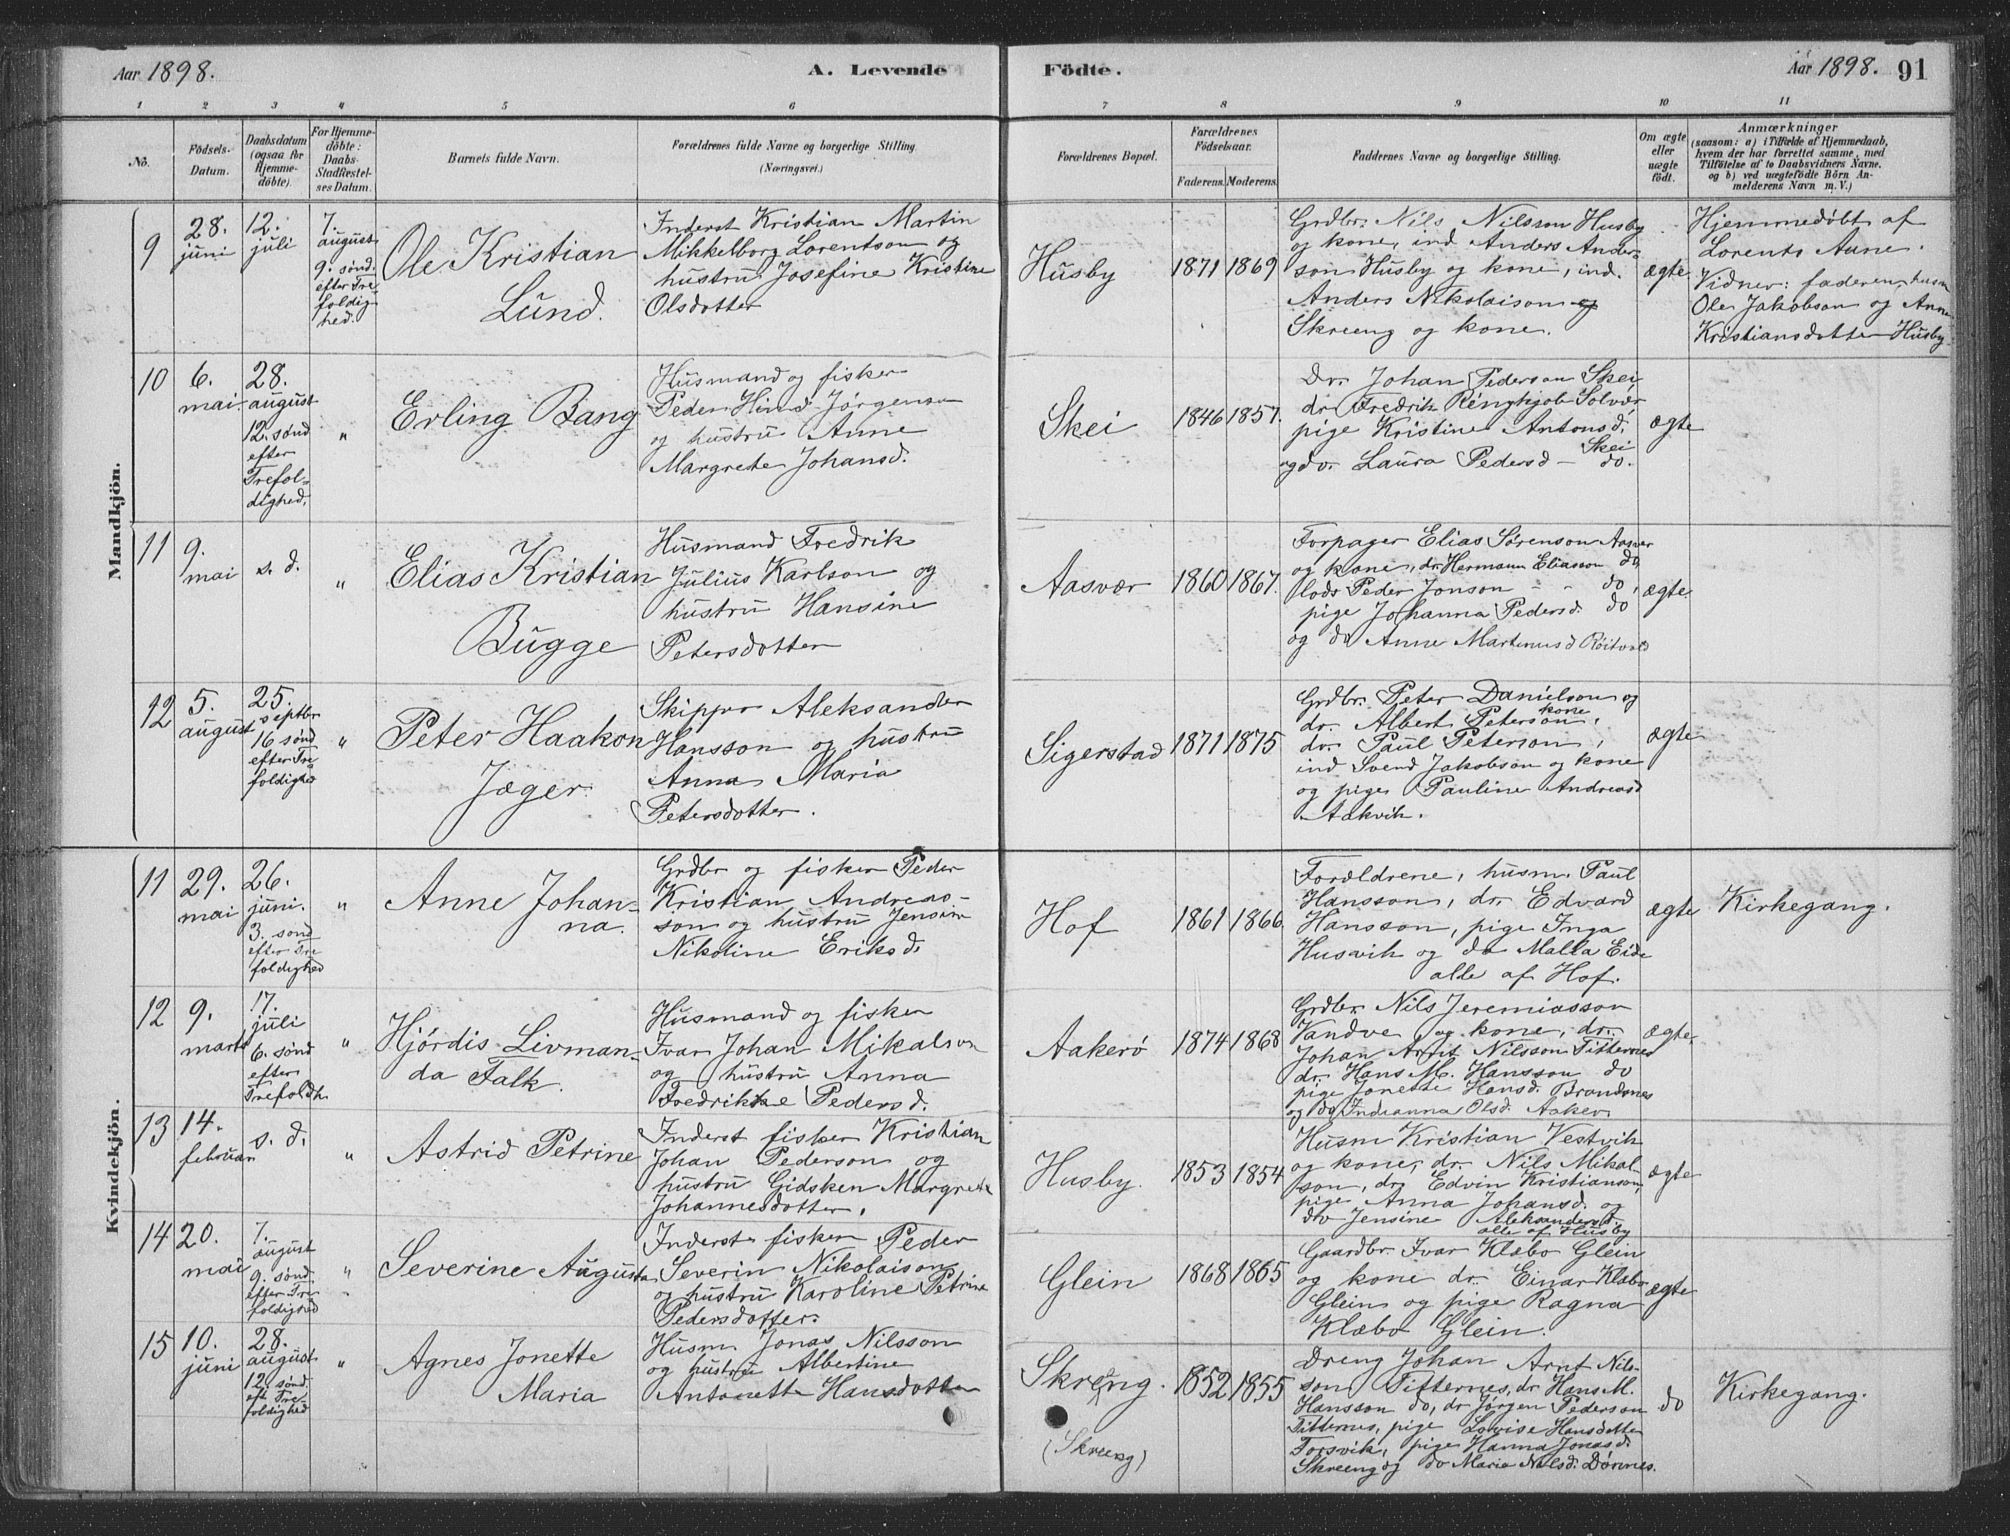 Aar 1898.
A. Levende
Födte.
Aar 1898. 91
1 2 3 4 5 6 7 8 9 10 11
No.
Födsels-
Datum.
Daabsdatum
(ogsaa for
Hjemme-
döbte).
For Hjemme-
döbte:
Daabs-
Stadfæstel-
ses Datum.
Barnets fulde Navn.
Forældrenes fulde Navne og borgerlige Stilling
(Næringsvei.)
Forældrenes Bopæl.
Forældrenes
Födselsaar.
Faderens. Moderens.
Faddernes Navne og borgerlige Stilling.
Om ægte
eller
uægte
födt.
Anmærkninger
(saasom: a) i Tilfælde af Hjemmedaab,
hvem der har forrettet samme, med
Tilföielse af to Daabsvidners Navne,
og b) ved uægtefödte Börn An-
melderens Navn m. V.)
Mandkjön.
9
28.
juni
12.
juli
7.
august
9. sønd.
efter Tre-
foldig-
hed.
Ole Kristian
Lund.
Inderst Kristian Martin
Mikkelborg Lorentson og
hustru Josefine Kristine
Olsdotter
Husby
1871 1869
Grdbr. Nils Nilsson Husby
og kone, ind Anders Ander-
son Husby og kone, ind.
Anders Nikolaison og
Skreeng og kone.
ægte
Hjemmedøbt af
Lorents Aune.
Vidner: faderen, husm
Ole Jakobson og Anne
Kristiansdotter Husby
10
6.
mai
28.
august
12. sønd
efter
Trefol-
dighed.
"
Erling Bang
Husmand og fisker
Peder Hind Jørgenson
og hustru Anne
Margrete Johansd.
Skei
1846 1857.
Dr. Johan Pederson Skei
dr Fredrik Ringkjøb Solvær,
pige Kristine Antonsd.
Skei
og do. Laura Pedersd - do.
ægte
11
9.
mai
s. d.
"
Elias Kristian
Bugge
Husmand Fredrik
Julius Karlson og
hustru Hansine
Petersdotter
Aasvær
1860 1867.
Forpagter Elias Sørenson Aasvær
og kone, dr. Hermann Eliasson do,
lods Peder Jonson - - do,
pige Johanna Pedersd. do
og do Anne Martinusd
ægte.
12
5.
august
25.
septbr
16 sønd
efter Tre-
foldighed
"
Peter Haakon
Jæger.
Skipper Aleksander
Hansson og hustru
Anna Maria
Petersdotter.
Sigerstad
1871 1875
Grdbr. Peter Danielson og
kone
dr. Albert Peterson,
dr. Paul Peterson,
ind Svend Jakobson og kone
og pige Pauline Andreasd
Aakvik.
ægte
Kvindekjön.
11
29.
mai
26.
juni.
3. sønd
efter Tre
foldighed
"
Anne Johan-
na.
Grdbr og fisker Peder
Kristian Andreas-
son og hustru Jensine
Nikoline Eriksd.
Hof
1861 1866.
Forældrene, husm. Paul
Hansson, dr. Edvard
Hansson, pige Inga
Husvik og do Malla Eide
alle af Hof.
ægte
Kirkegang.
12
9.
marts
17.
juli
6. sønd
efter
Trefoldh.
"
Hjørdis Livman-
da Falk.
Husmand og fisker
Ivar Johan Mikalson
og hustru Anna
Fredrikke Pedersd.
Aakerø
1874 1868
Grdbr Nils Jeremiasson
Vandve og kone, dr.
Johan Arnt Nilsson Titternes
dr. Hans M. Hansson do
pige Jonette Hansd. Brandsnes
og do Indianna Olsd. Aakerø
ægte.
13
14.
februar
s. d.
"
Astrid Petrine
Inderst fisker Kristian
Johan Pederson og
hustru Gidsken Margrete
Johannesdotter.
Husby.
1853 1854
Husm Kristian Vestvik
og kone, dr. Nils Mikal-
son, dr Edvin Kristianson,
pige Anna Johansd. og
do Jensine Aleksandersd.
alle af Husby
ægte
14
20.
mai
7.
august
9. sønd
efter Tre
foldighed
"
Severine Augusta
Inderst fisker Peder
Severin Nikolaison
og hustru Karoline Petrine
Pedersdotter.
Glein
1868 1865
Gaardbr. Ivar Klæbo Glein
og kone dr. Einar Klæbo
Glein og pige Ragna
Klæbo Glein.
ægte
15
10.
juni
28.
august
12. sønd
eft. Tre-
foldighed
"
Agnes Jonette
Maria
Husm. Jonas Nilsson
og hustru Albertine
Antonette Hansdotter
Skreeng.
(Skreeng)
1852 1855
Dreng Johan Arnt Nils-
son Titternes, dr. Hans M.
Hansson do, dr Jørgen Pederson
Titternes, pige Lovise Hansdotter
Forsvik, pige Hanna Jonasd.
Skreeng og do Maria Nilsd. Dønnes.
do
Kirkegang.